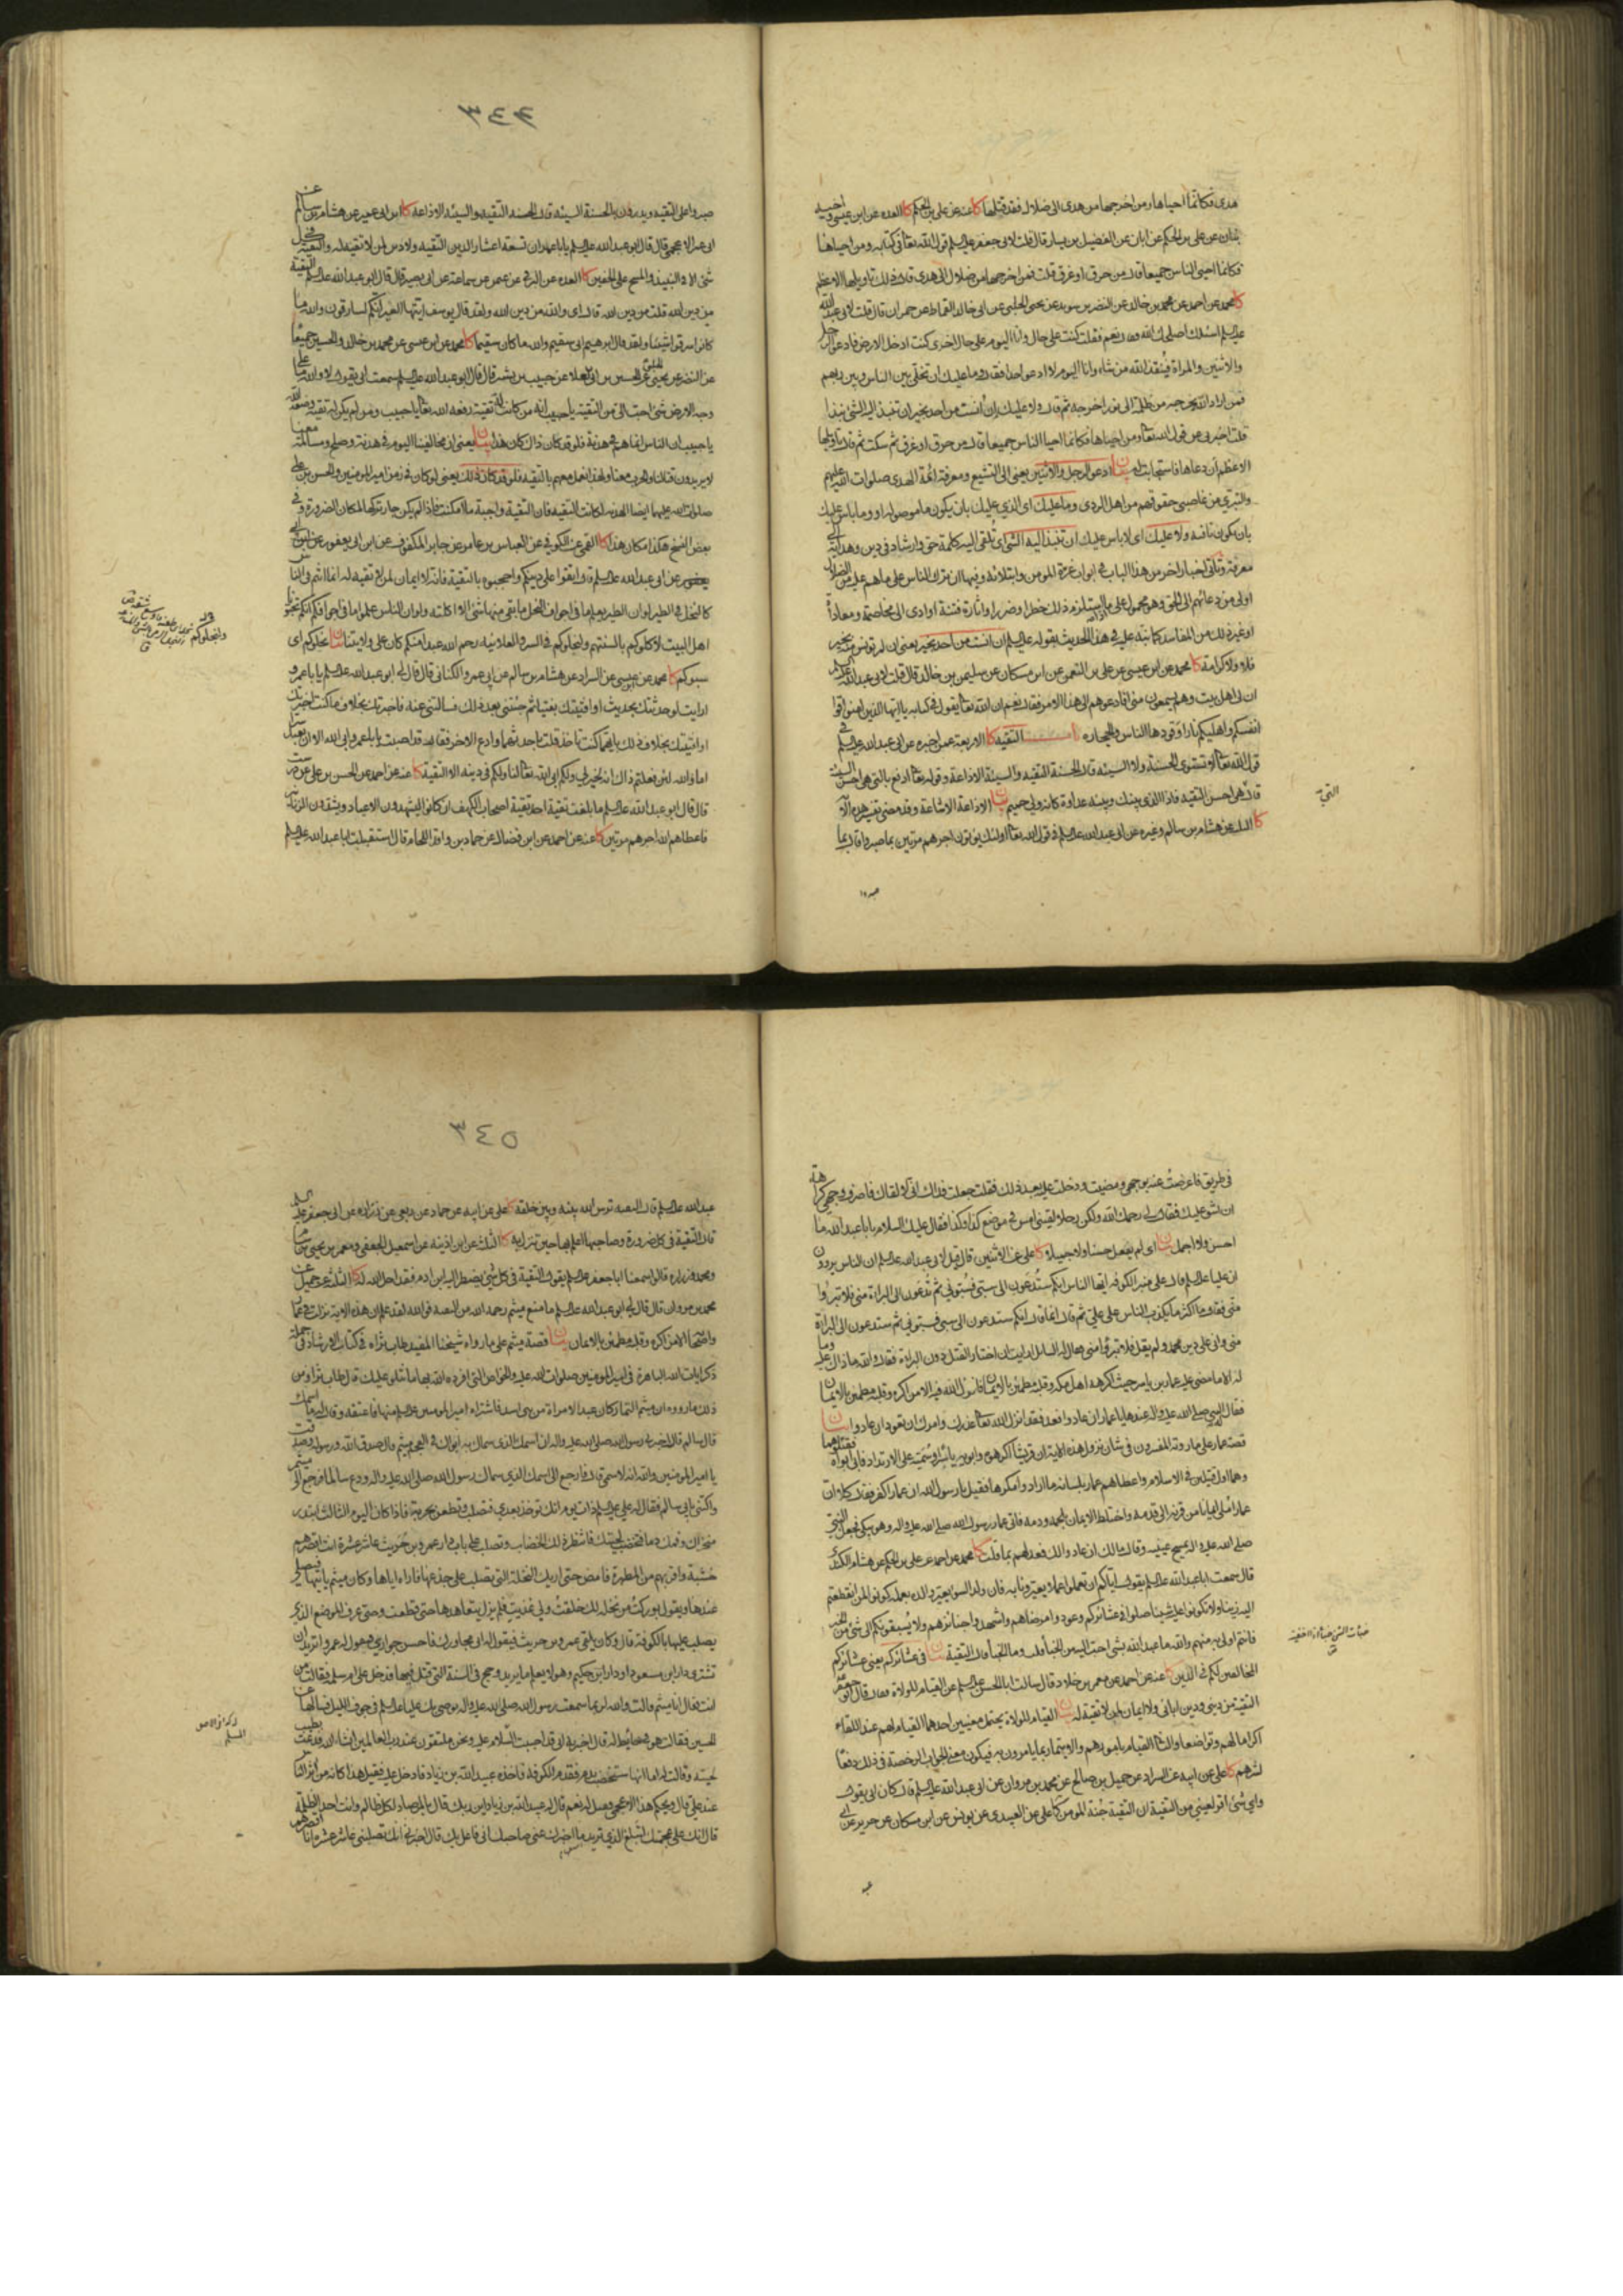 هدى فكانما احياها ومن اخرجها من هدى الى ضلال فقد قتلها كا عنه عن علي بن الحكم كا العده عن ابن عيسى و احمد
عن علي بن الحكم عن ابان عن الفضيل بن يسار قال قلت لابي جعفر عليه السلم قول الله تعا في كتابه ومن احياها
فكانما احيى الناس جميعا قال من حرق او غرق قلت فمن اخرجها من ضلال الى هدى قال ذلك تاويلها الاعظم
كا محمد عن احمد عن محمد بن خالد عن النضر بن سويد عن يحيى الحلبي عن ابي خالد القماط عن حمران قال قلت لابي عبد الله
عليه السلم اسئلك اصلحك الله فقال نعم فقلت كنت على حال وانا اليوم على حال اخرى كنت ادخل الارض فادعو الرجل
والاثنين والمراة فينقذ الله من شاء وانا اليوم لا ادعو احدا فقال وما عليك ان تخلي بين الناس وبين ربهم
فمن اراد الله ان يخرجه من ظلمة الى نور اخرجه ثم قال ولا عليك ان آنست من احد خيرا ان تنبذ اليه الشئ نبذا
قلت اخبرني عن قول الله تعا ومن احياها فكانما احيا الناس جميعا قال من حرق او غرق ثم سكت ثم قال تاويلها
الاعظم ان دعاها فاستجابت له بيان ادعو الرجل والاثنين يعني الى التشيع ومعرفة ائمة الهدى صلوات الله عليهم
والتبري من غاصبي حقوقهم من اهل الردى وما عليك اي الذي عليك بان يكون ما موصولة او وما باس عليك
بان يكون نافية ولا عليك اي لا باس عليك ان تنبذ اليه الشئ اي تلقى اليه كلمة حق وارشاد في دين وهداية الى
معرفة وتاتي اخبار اخر من هذا الباب في ابواب
اولى من دعائهم الى الحق وهو محمول على ما اذا استلزم ذلك خطرا وضررا واثارة فتنة او ادى الى مخاصمة ومعاداة
او غير ذلك من المفاسد كما نبه عليه في هذا الحديث بقوله عليه السلم ان انست من احد بخير يعني ان لم تونس منه بخير
فلا ولا كرامة كا محمد عن ابن عيسى عن علي بن النعمن عن ابن مسكان عن سليمن بن خالد قال قلت لابي عبد الله عليه السلم
ان لي اهل بيت وهم يسمعون مني افادعوهم الى هذا الامر فقال نعم ان الله تعا يقول في كتابه يا ايها الذين امنوا قوا
انفسكم واهليكم نارا وقودها الناس والحجارة باب التقيه كا الاربعة عمن اخبره عن ابي عبد الله عليه السلم في
قول الله تعا لا تستوى الحسنة ولا السيئة قال الحسنة التقيه والسيئة الاذاعة وقوله تعا ادفع بالتي هي احسن السيئة
قال التي هي احسن التقيه فاذا الذى بينك وبينه عداوة كانه ولي حميم بيان الاذاعة الاشاعة وقد مضى تفسير هذه الآية
كا الثلثة عن هشام بن سالم وغيره عن ابي عبد الله عليه السلم في قول الله تعا اولئك يؤتون اجرهم مرتين بما صبروا قال بما
التي
صبروا
٣٤٤
صبروا على التقيه ويدرؤن بالحسنة السيئه قال الحسنه التقيه والسيئه الاذاعة كا ابن ابي عمير عن هشام بن سالم عن
ابي عمر الاعجمي قال قال ابو عبد الله عليه السلم يا باعمر ان تسعة اعشار الدين التقيه ولا دين لمن لا تقيه له والتقيه في كل
شئ الا في النبيذ والمسح على الخفين كا العده عن البرقي عن عثمن عن سماعة عن ابي بصير قال قال ابو عبد الله عليه السلم التقية
من دين الله قلت من دين الله قال اي والله من دين الله ولقد قال يوسف ايتها العير انكم لسارقون والله ما
كانوا سرقوا شيئا ولقد قال ابراهيم اني سقيم والله ما كان سقيما كا محمد عن ابن عيسى عن محمد بن خالد والحسين جميعا
عن النضر عن يحيى الحلبي عن الحسين بن ابي العلا عن حبيب بن بشر قال قال ابو عبد الله عليه السلم سمعت ابي يقول لا والله ما على
وجه الارض شئ احب الى من التقية يا حبيب انه من كانت له تقية رفعه الله تعا يا حبيب ومن لم يكن له تقية وضعه الله
يا حبيب ان الناس انما هم في هدنة فلو قد كان ذلك كان هذا بيان يعني ان مخالفينا اليوم في هدنة وصلح ومسالمة معنا
لا يريدون قتالنا والحرب معنا ولهذا نعمل معهم بالتقيه فلو قد كان ذلك يعني لو كان في زمن امير المومنين والحسن بن علي
صلوات الله عليهما ايضا الهدنه لكانت التقيه فان التقية واجبة ما امكنت فاذا لم يكن جاز تركها لمكان الضرورة وفي
بعض النسخ هكذا مكان هذا كا القمي عن الكوفي عن العباس بن عامر عن جابر المكفوف عن ابن ابي يعفور عن ابي
عبد الله عليه السلم قال اتقوا على دينكم واحجبوه بالتقية فانه لا ايمان لمن لا تقيه له انما انتم في الناس
كالنحل في الطير لو ان الطير يعلم ما في اجواف النحل ما بقي منها شئ الا اكلته ولو ان الناس علموا ما في اجوافكم انكم تحبونا
اهل البيت لاكلوكم بالسنتهم ولنحلوكم في السر والعلانيه رحم الله عبدا منكم كان على ولايتنا بيان نحلوكم اي
سبوكم كا محمد عن ابن عيسى عن السراد عن هشام بن سالم عن ابي عمرو الكناني قال قال لي ابو عبد الله عليه السلم يا باعمرو
ارايت لو حدثتك بحديث او افتيتك بفتيا ثم جئتني بعد ذلك فسالتني عنه فاخبرتك بخلاف ما كنت اخبرتك
او افتيتك بخلاف ذلك بايهما كنت تاخذ قلت باحدثهما وادع الاخر فقال قد اصبت يا باعمرو ابى الله الا ان يعبد سرا
اما والله لئن فعلتم ذلك انه لخير لي ولكم ابى الله تعا لنا ولكم في دينه الا التقية كا عنه عن احمد عن الحسن بن علي عن درست
قال قال ابو عبد الله عليه السلم ما بلغت تقية احد تقية اصحاب الكهف ان كانوا ليشهدون الاعياد ويشدون الزنانير
فاعطاهم الله اجرهم مرتين كا عنه عن احمد عن ابن فضال عن حماد بن واقد اللحام قال استقبلت ابا عبد الله عليه السلم
ولنجلوكم
في طريق فاعرضت عنه بوجهي ومضيت ودخلت عليه بعد ذلك فقلت جعلت فداك اني لالقاك فاصرف وجهي كراهة
ان اشق عليك فقال لي رحمك الله ولكن رجلا لقيني امس في موضع كذا وكذا فقال عليك السلام يا با عبد الله ما
احسن ولا اجمل بيان اي لم يفعل حسنا ولا جميلا كا علي عن الاثنين قال قيل لابي عبد الله عليه السلم ان الناس يروون
ان عليا عليه السلم قال على منبر الكوفه ايها الناس انكم ستدعون الى سبي فسبوني ثم تدعون الى البراءة مني فلا تبرؤا
مني فقال ما اكثر ما يكذب الناس على علي ثم قال انما قال انكم ستدعون الى سبي فسبوني ثم ستدعون الى البراءة
مني واني على دين محمد ولم يقل فلا تبرؤا مني فقال له السائل ارايت ان اختار القتل دون البراءة فقال والله ما ذاك عليه وما
له الا ما مضى عليه عمار بن ياسر حيث اكرهه اهل مكة وقلبه مطمئن بالايمان فانزل الله فيه الا من اكره وقلبه مطمئن بالايمان
فقال النبي صلى الله عليه واله عندها يا عمار ان عادوا فعد فقد انزل الله تعا عذرك وامرك ان تعود ان عادوا بيان
قصة عمار على ما روته المفسرون في شان نزول هذه الاية ان قريشا اكرهوه وابويه ياسرا وسمية على الارتداد فابى ابواه فقتلوهما
وهما اول قتيلين في الاسلام واعطاهم عمار بلسانه ما ارادوا مكرها فقيل يا رسول الله ان عمارا كفر فقال كلا ان
عمارا ملئ ايمانا من قرنه الى قدمه واختلط الايمان بلحمه ودمه فاتى عمار رسول الله صلى الله عليه واله وهو يبكي فجعل النبي
صلى الله عليه واله يمسح عينيه وقال مالك ان عادوا لك فعد لهم بما قلت كا محمد عن احمد عن علي بن الحكم عن هشام الكندي
قال سمعت ابا عبد الله عليه السلم يقول اياكم ان تعملوا عملا يعيرونا به فان ولد السوء يعير والده بعمله كونوا لمن انقطعتم
اليه زينا ولا تكونوا عليه شينا صلوا في عشائركم وعودوا مرضاهم واشهدوا جنائزهم ولا يسبقونكم الى شئ من الخير
فانتم اولى به منهم والله ما عبد الله بشئ احب اليه من الخباء قلت وما الخباء قال التقية بيان في عشائركم يعني عشائركم
المخالفين لكم في الدين كا عنه عن احمد عن معمر بن خلاد قال سالت ابا الحسن عليه السلم عن القيام للولاة فقال قال ابو جعفر
التقية من ديني ودين ابائي ولا ايمان لمن لا تقية له بيان القيام للولاة يحتمل معنيين احدهما القيام لهم عند اللقاء
اكراما لهم وتواضعا والثاني القيام بامورهم والايتمار بما يامرون به فيكون معنى الجواب الرخصة في ذلك دفعا
لشرهم كا علي عن ابيه عن السراد عن جميل بن صالح عن محمد بن مروان عن ابي عبد الله عليه السلم قال كان ابي يقول
واي شئ اقر لعيني من التقية ان التقية جنة المومن كا علي عن العبيدي عن يونس عن ابن مسكان عن حريز عن ابي
عبد
٣٤٥
عبد الله عليه السلم قال التقية ترس الله بينه وبين خلقه كا علي عن ابيه عن حماد عن ربعي عن زرارة عن ابي جعفر عليه السلم
قال التقية في كل ضرورة وصاحبها اعلم بها حين تنزل به كا الثلثة عن ابن اذينه عن اسمعيل الجعفي ومعمر بن يحيى بن سام
ومحمد وزراره قالوا سمعنا ابا جعفر عليه السلم يقول التقية في كل شئ يضطر اليه ابن ادم فقد احل الله له كا الثلثة عن جميل عن
محمد بن مروان قال قال لي ابو عبد الله عليه السلم ما منع ميثم رحمه الله من التقية فوالله لقد علم ان هذه الاية نزلت في عمار
واصحابه الا من اكره وقلبه مطمئن بالايمان بيان قصة ميثم على ما رواه شيخنا المفيد طاب ثراه في كتاب الارشاد في جملة
ذكر ايات الله الباهرة في امير المومنين صلوات الله عليه والخواص التي افرده الله بها ما نتلو عليك قال طاب ثراه ومن
ذلك ما رووه ان ميثم التمار كان عبدا لامراة من بني اسد فاشتراه امير المومنين عليه السلم منها فاعتقه وقال له ما اسمك
قال سالم قال اخبرني رسول الله صلى الله عليه واله ان اسمك الذي سماك به ابواك في العجم ميثم قال صدق الله ورسوله وصدقت
يا امير المومنين والله انه لاسمي قال فارجع الى اسمك الذي سماك رسول الله صلى الله عليه واله ودع سالما فرجع الى ميثم
واكتنى بابي سالم فقال له علي عليه السلم ذات يوم انك توخذ بعدي فتصلب وتطعن بحربة فاذا كان اليوم الثالث ابتدر
منخراك وفمك دما فتخضب لحيتك فانتظر ذلك الخضاب وتصلب على باب دار عمرو بن حريث عاشر عشرة انت اقصرهم
خشبة واقربهم من المطهرة فامض حتى اريك النخلة التي تصلب على جذعها فاراه اياها وكان ميثم ياتيها فيصلي
عندها ويقول بوركت من نخلة لك خلقت ولي غذيت فلم يزل يتعاهدها حتى قطعت وحتى عرف الموضع الذي
يصلب عليها بالكوفة قال وكان يلقى عمرو بن حريث فيقول له اني مجاورك فاحسن جواري فيقول له عمرو اتريد ان
تشترى دار ابن مسعود او دار ابن حكيم وهو لا يعلم ما يريد وحج في السنة التي قتل فيها فدخل على ام سلمة فقالت من
انت فقال انا ميثم قالت والله لربما سمعت رسول الله صلى الله عليه واله يوصي بك عليا عليه السلم في جوف الليل فسالها عن
الحسين فقالت هو في حائط له قال اخبريه اني قد احببت السلام عليه ونحن ملتقون عند رب العالمين انشاء الله فدعت بطيب
لحيته وقالت له اما انها ستخضب بدم فقدم الكوفة فاخذه عبيد الله بن زياد فادخل عليه فقيل هذا كان من آثر الناس
عند علي قال ويحكم هذا الاعجمي وقيل له نعم قال له عبيد الله بن زياد اين ربك قال بالمرصاد لكل ظالم وانت احد الظلمة
قال انك على عجمتك لتبلغ الذي تريد ما اخبرك عني صاحبك اني فاعل بك قال اخبرني انك تصلبني عاشر عشرة انا اقصرهم